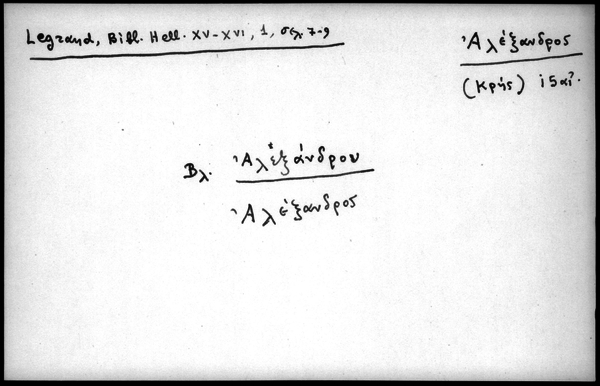 Legrand, Bibl. Hell. XV-XVI, 1, σελ. 7-9
Ἀλέξανδρος
(Κρής) 15 αἰ.
Βλ. Ἀλεξάνδρου
Ἀλέξανδρος